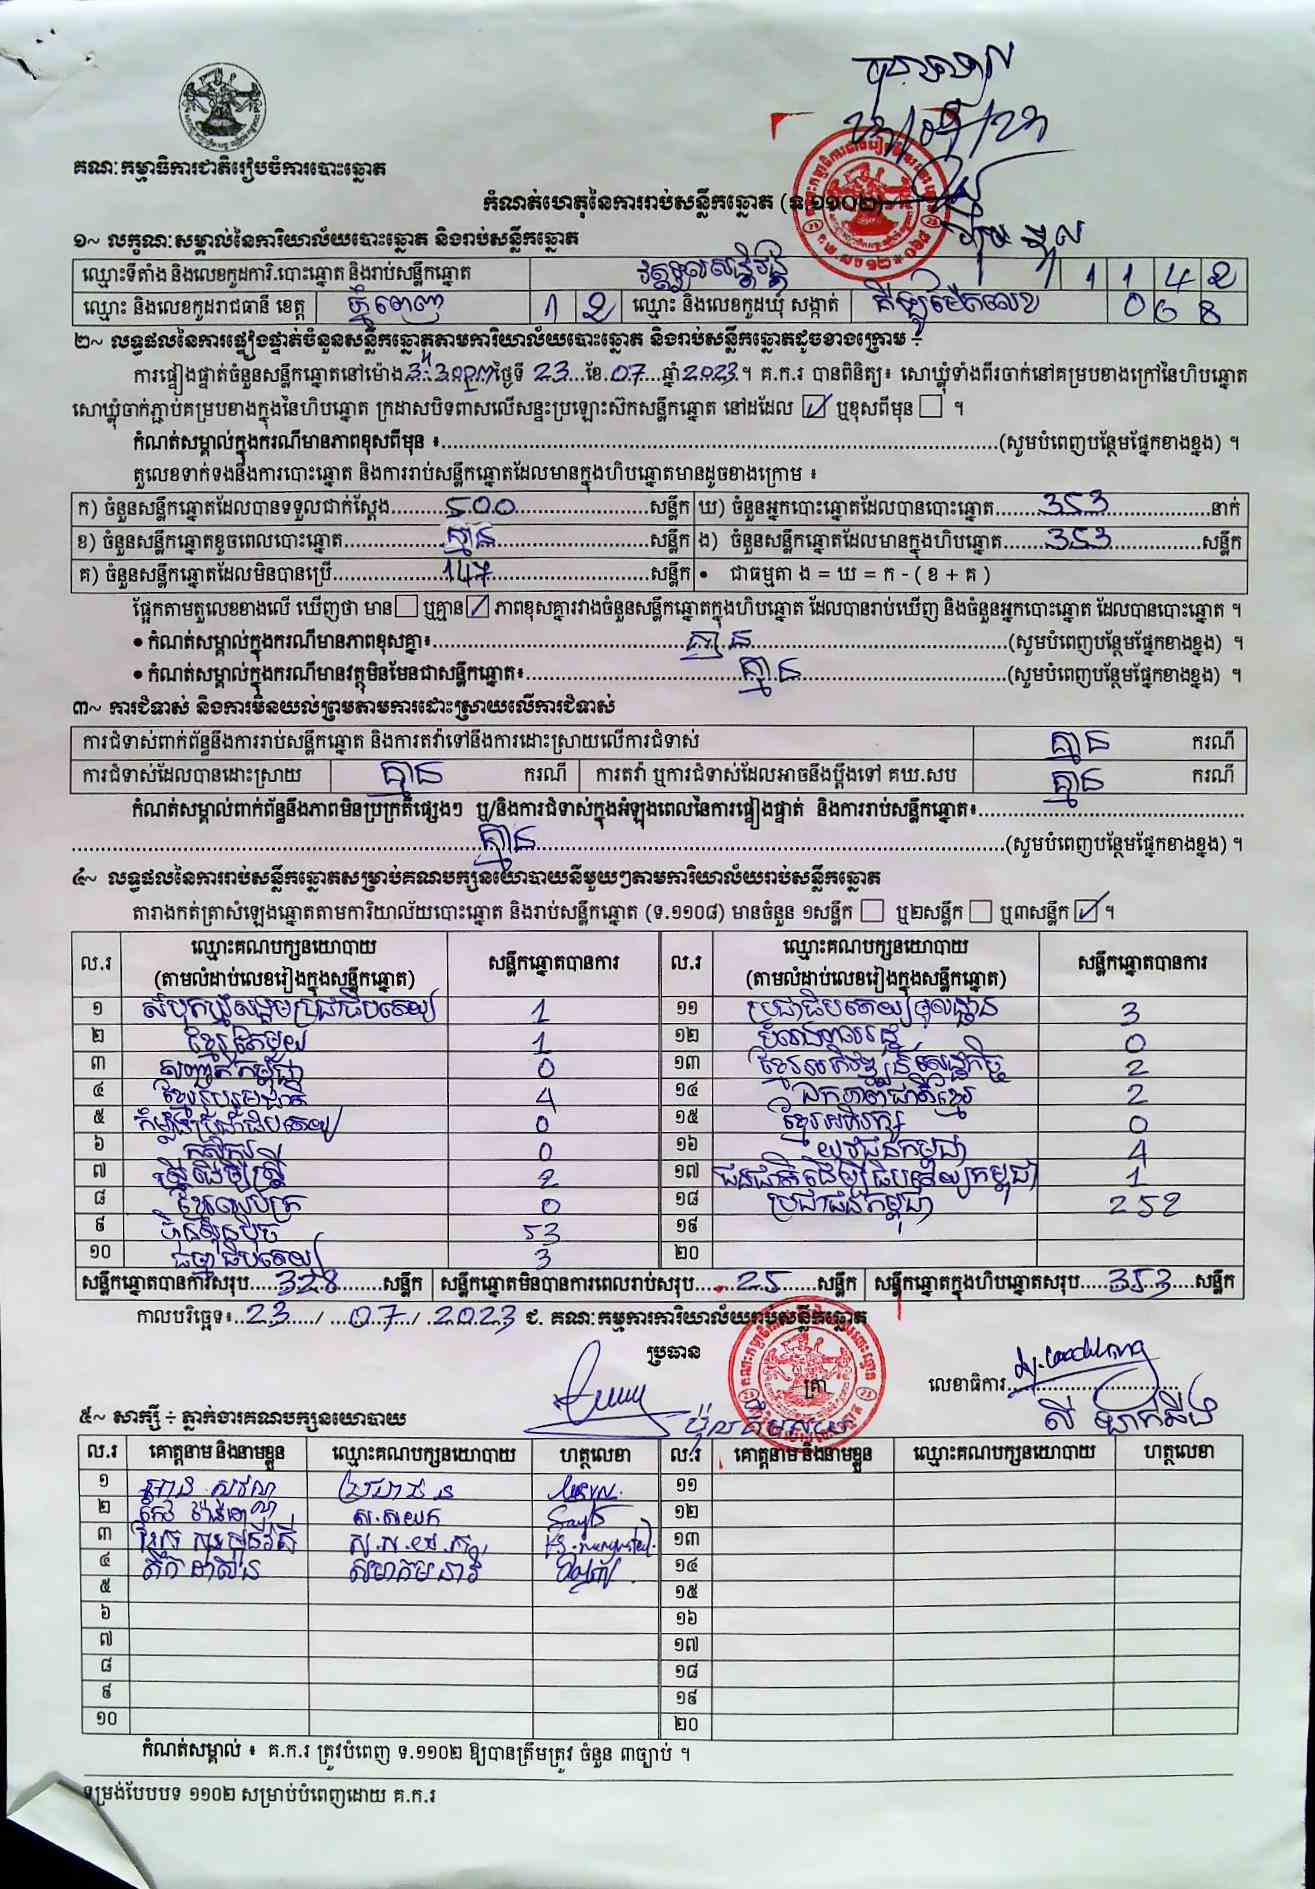 គណៈកម្មាធិការជាតិរៀបចំការបោះឆ្នោត
កំណត់ហេតុនៃការរាប់សន្លឹកឆ្នោត (ទ.១១០២)
១~ លក្ខណៈសម្គាល់នៃការិយាល័យបោះឆ្នោត និងរាប់សន្លឹកឆ្នោត
ឈ្មោះទីតាំង និងលេខកូដការិ.បោះឆ្នោត និងរាប់សន្លឹកឆ្នោត វត្តទួលសន្តិវ័ន្ត 1 1 4 2
ឈ្មោះ និងលេខកូដរាជធានី ខេត្ត ភ្នំពេញ 1 2 ឈ្មោះ និងលេខកូដឃុំ សង្កាត់ គីឡូម៉ែត្រលេខ 0 6 8
២~ លទ្ធផលនៃការផ្ទៀងផ្ទាត់ចំនួនសន្លឹកឆ្នោតតាមការិយាល័យបោះឆ្នោត និងរាប់សន្លឹកឆ្នោតដូចខាងក្រោម ÷
ការផ្ទៀងផ្ទាត់ចំនួនសន្លឹកឆ្នោតនៅម៉ោង 3:30pm ថ្ងៃទី 23 ខែ 07 ឆ្នាំ 2023 ។ គ.ក.រ បានពិនិត្យ៖ សោឃ្លុំទាំងពីរចាក់នៅគម្របខាងក្រៅនៃហិបឆ្នោត
សោឃ្លុំចាក់ភ្ជាប់គម្របខាងក្នុងនៃហិបឆ្នោត ក្រដាសបិទពាសលើសន្ទះប្រឡោះស៊កសន្លឹកឆ្នោត នៅដដែល ☑ ឬខុសពីមុន ☐ ។
កំណត់សម្គាល់ក្នុងករណីមានភាពខុសពីមុន ៖ (សូមបំពេញបន្ថែមផ្នែកខាងខ្នង) ។
តួលេខទាក់ទងនឹងការបោះឆ្នោត និងការរាប់សន្លឹកឆ្នោតដែលមានក្នុងហិបឆ្នោតមានដូចខាងក្រោម ៖
ក) ចំនួនសន្លឹកឆ្នោតដែលបានទទួលជាក់ស្តែង 500 សន្លឹក ឃ) ចំនួនអ្នកបោះឆ្នោតដែលបានបោះឆ្នោត 353 នាក់
ខ) ចំនួនសន្លឹកឆ្នោតខូចពេលបោះឆ្នោត គ្មាន សន្លឹក ង) ចំនួនសន្លឹកឆ្នោតដែលមានក្នុងហិបឆ្នោត 353 សន្លឹក
គ) ចំនួនសន្លឹកឆ្នោតដែលមិនបានប្រើ 147 សន្លឹក • ជាធម្មតា ង = ឃ = ក - ( ខ + គ )
ផ្អែកតាមតួលេខខាងលើ ឃើញថា មាន ☐ ឬគ្មាន ☑ ភាពខុសគ្នារវាងចំនួនសន្លឹកឆ្នោតក្នុងហិបឆ្នោត ដែលបានរាប់ឃើញ និងចំនួនអ្នកបោះឆ្នោត ដែលបានបោះឆ្នោត ។
• កំណត់សម្គាល់ក្នុងករណីមានភាពខុសគ្នា៖ គ្មាន (សូមបំពេញបន្ថែមផ្នែកខាងខ្នង) ។
• កំណត់សម្គាល់ក្នុងករណីមានវត្ថុមិនមែនជាសន្លឹកឆ្នោត៖ គ្មាន (សូមបំពេញបន្ថែមផ្នែកខាងខ្នង) ។
៣~ ការជំទាស់ និងការមិនយល់ព្រមតាមការដោះស្រាយលើការជំទាស់
ការជំទាស់ពាក់ព័ន្ធនឹងការរាប់សន្លឹកឆ្នោត និងការតវ៉ាទៅនឹងការដោះស្រាយលើការជំទាស់ គ្មាន ករណី
ការជំទាស់ដែលបានដោះស្រាយ គ្មាន ករណី ការតវ៉ា ឬការជំទាស់ដែលអាចនឹងប្តឹងទៅ គឃ.សប គ្មាន ករណី
កំណត់សម្គាល់ពាក់ព័ន្ធនឹងភាពមិនប្រក្រតីផ្សេងៗ ឬ/និងការជំទាស់ក្នុងអំឡុងពេលនៃការផ្ទៀងផ្ទាត់ និងការរាប់សន្លឹកឆ្នោត៖
គ្មាន (សូមបំពេញបន្ថែមផ្នែកខាងខ្នង) ។
៤~ លទ្ធផលនៃការរាប់សន្លឹកឆ្នោតសម្រាប់គណបក្សនយោបាយនីមួយៗតាមការិយាល័យរាប់សន្លឹកឆ្នោត
តារាងកត់ត្រាសំឡេងឆ្នោតតាមការិយាល័យបោះឆ្នោត និងរាប់សន្លឹកឆ្នោត (ទ.១១០៨) មានចំនួន ១សន្លឹក ☐ ឬ២សន្លឹក ☐ ឬ៣សន្លឹក ☑ ។
ល.រ ឈ្មោះគណបក្សនយោបាយ (តាមលំដាប់លេខរៀងក្នុងសន្លឹកឆ្នោត) សន្លឹកឆ្នោតបានការ ល.រ ឈ្មោះគណបក្សនយោបាយ (តាមលំដាប់លេខរៀងក្នុងសន្លឹកឆ្នោត) សន្លឹកឆ្នោតបានការ
១ សំបុកឃ្មុំសង្គមប្រជាធិបតេយ្យ 1 ១១ ប្រជាធិបតេយ្យមូលដ្ឋាន 3
២ ខ្មែរតែមួយ 1 ១២ បំរើរាស្ត្រ 0
៣ សញ្ជាតិកម្ពុជា 0 ១៣ ខ្មែរអភិវឌ្ឍន៍សេដ្ឋកិច្ច 2
៤ ខ្មែររួបរួមជាតិ 4 ១៤ ឯកភាពជាតិខ្មែរ 2
៥ កម្លាំងប្រជាធិបតេយ្យ 0 ១៥ ខ្មែរអភិរក្ស 0
៦ កសិករ 0 ១៦ យុវជនកម្ពុជា 4
៧ ស្ត្រីដើម្បីស្ត្រី 2 ១៧ ជនជាតិដើមប្រជាធិបតេយ្យកម្ពុជា 1
៨ ខ្មែរឈប់ក្រ 0 ១៨ ប្រជាជនកម្ពុជា 252
៩ ហ្វ៊ុនស៊ិនប៉ិច 53 ១៩
១០ ធម្មាធិបតេយ្យ 3 ២០
សន្លឹកឆ្នោតបានការសរុប 328 សន្លឹក សន្លឹកឆ្នោតមិនបានការពេលរាប់សរុប 25 សន្លឹក សន្លឹកឆ្នោតក្នុងហិបឆ្នោតសរុប 353 សន្លឹក
កាលបរិច្ឆេទ៖ 23 / 07 / 2023 ជ. គណៈកម្មការការិយាល័យរាប់សន្លឹកឆ្នោត
ប្រធាន ត្រា លេខាធិការ
៥~ សាក្សី ÷ ភ្នាក់ងារគណបក្សនយោបាយ
ល.រ គោត្តនាម និងនាមខ្លួន ឈ្មោះគណបក្សនយោបាយ ហត្ថលេខា ល.រ គោត្តនាម និងនាមខ្លួន ឈ្មោះគណបក្សនយោបាយ ហត្ថលេខា
១ ប្រជាជន ១១
២ ស.ស.យ.ក ១២
៣ ១៣
៤ សមាគមនារី ១៤
៥ ១៥
៦ ១៦
៧ ១៧
៨ ១៨
៩ ១៩
១០ ២០
កំណត់សម្គាល់ ៖ គ.ក.រ ត្រូវបំពេញ ទ.១១០២ ឱ្យបានត្រឹមត្រូវ ចំនួន ៣ច្បាប់ ។
ទម្រង់បែបបទ ១១០២ សម្រាប់បំពេញដោយ គ.ក.រ